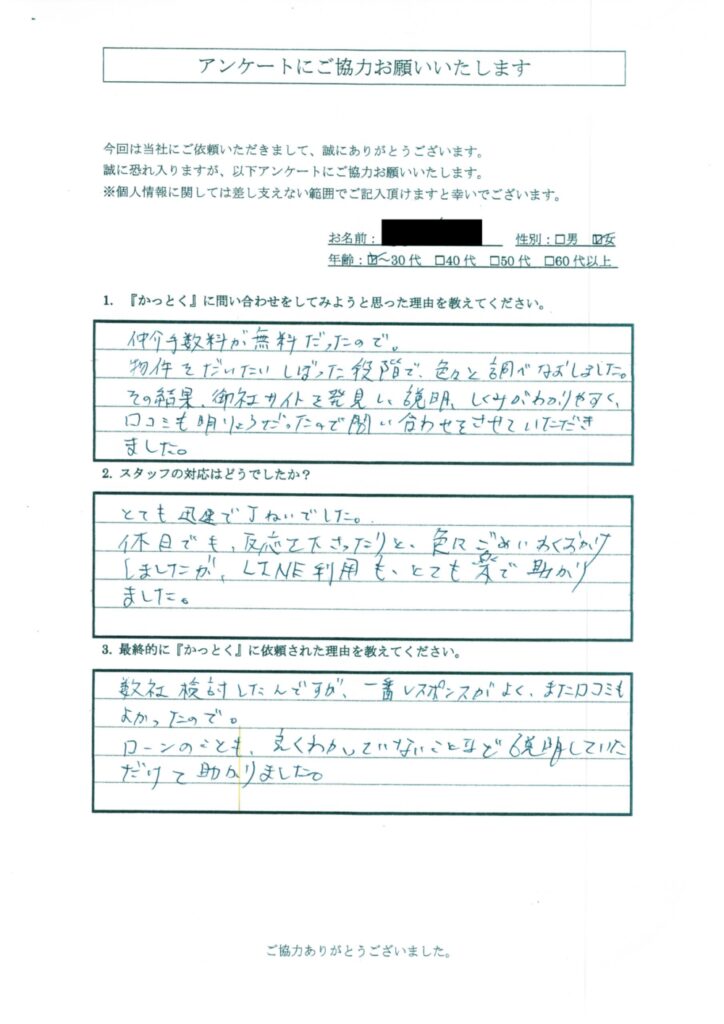 アンケートにご協力お願いいたします
今回は当社にご依頼いただきまして、誠にありがとうございます。
誠に恐れ入りますが、以下アンケートにご協力お願いいたします。
※個人情報に関しては差し支えない範囲でご記入頂けますと幸いでございます。
お名前： 性別：□男 ☑女
年齢：☑～30代 □40代 □50代 □60代以上
1. 『かっとく』に問い合わせをしてみようと思った理由を教えてください。
仲介手数料が無料だったので。
物件をだいたいしぼった段階で、色々と調べなおしました。
その結果、御社サイトを発見し、説明、しくみがわかりやすく、
口コミも明りょうだったので問い合わせをさせていただき
ました。
2. スタッフの対応はどうでしたか？
とても迅速で丁ねいでした。
休日でも、反応下さったりと、色々ごめいわくおかけ
しましたが、LINE利用も、とても楽で助かり
ました。
3. 最終的に『かっとく』に依頼された理由を教えてください。
数社検討したんですが、一番レスポンスがよく、また口コミも
よかったので。
ローンのことも、良くわかっていないことまで説明していた
だけて助かりました。
ご協力ありがとうございました。